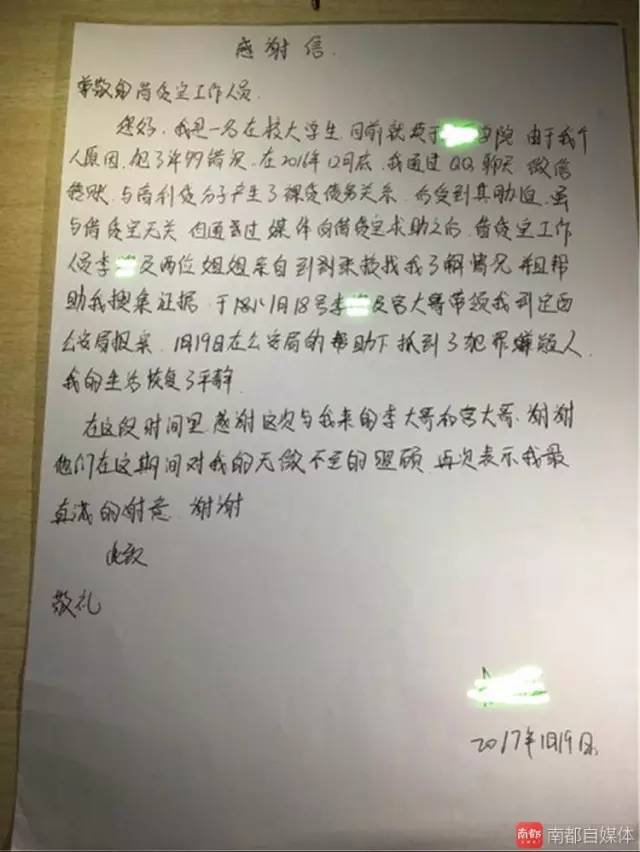 感谢信.
尊敬的借贷宝工作人员.
您好,我是一名在校大学生,目前就读于学院 由于我个
人原因,犯了年 情况,在2016年12月底,我通过QQ聊天 微信
转账,与高利贷分子产生了裸贷债务关系,后受到其胁迫,虽
与借贷宝无关 但通过 媒体向借贷宝求助之后,借贷宝工作
人员李 及两位姐姐亲自到 来找我了解情况并且帮
助我搜集证据,于 1月18号李 及宫大哥带领我到定西
公安局报案, 1月19日在公安局的帮助下抓到了犯罪嫌疑人,
我的生活恢复了平静.
在这段时间里,感谢这次与我来的李大哥和宫大哥,谢谢
他们在这期间对我的无微不至的照顾,再次表示我最
真诚的谢意 谢谢
此致
敬礼
2017年1月19日.
南都 南都自媒体